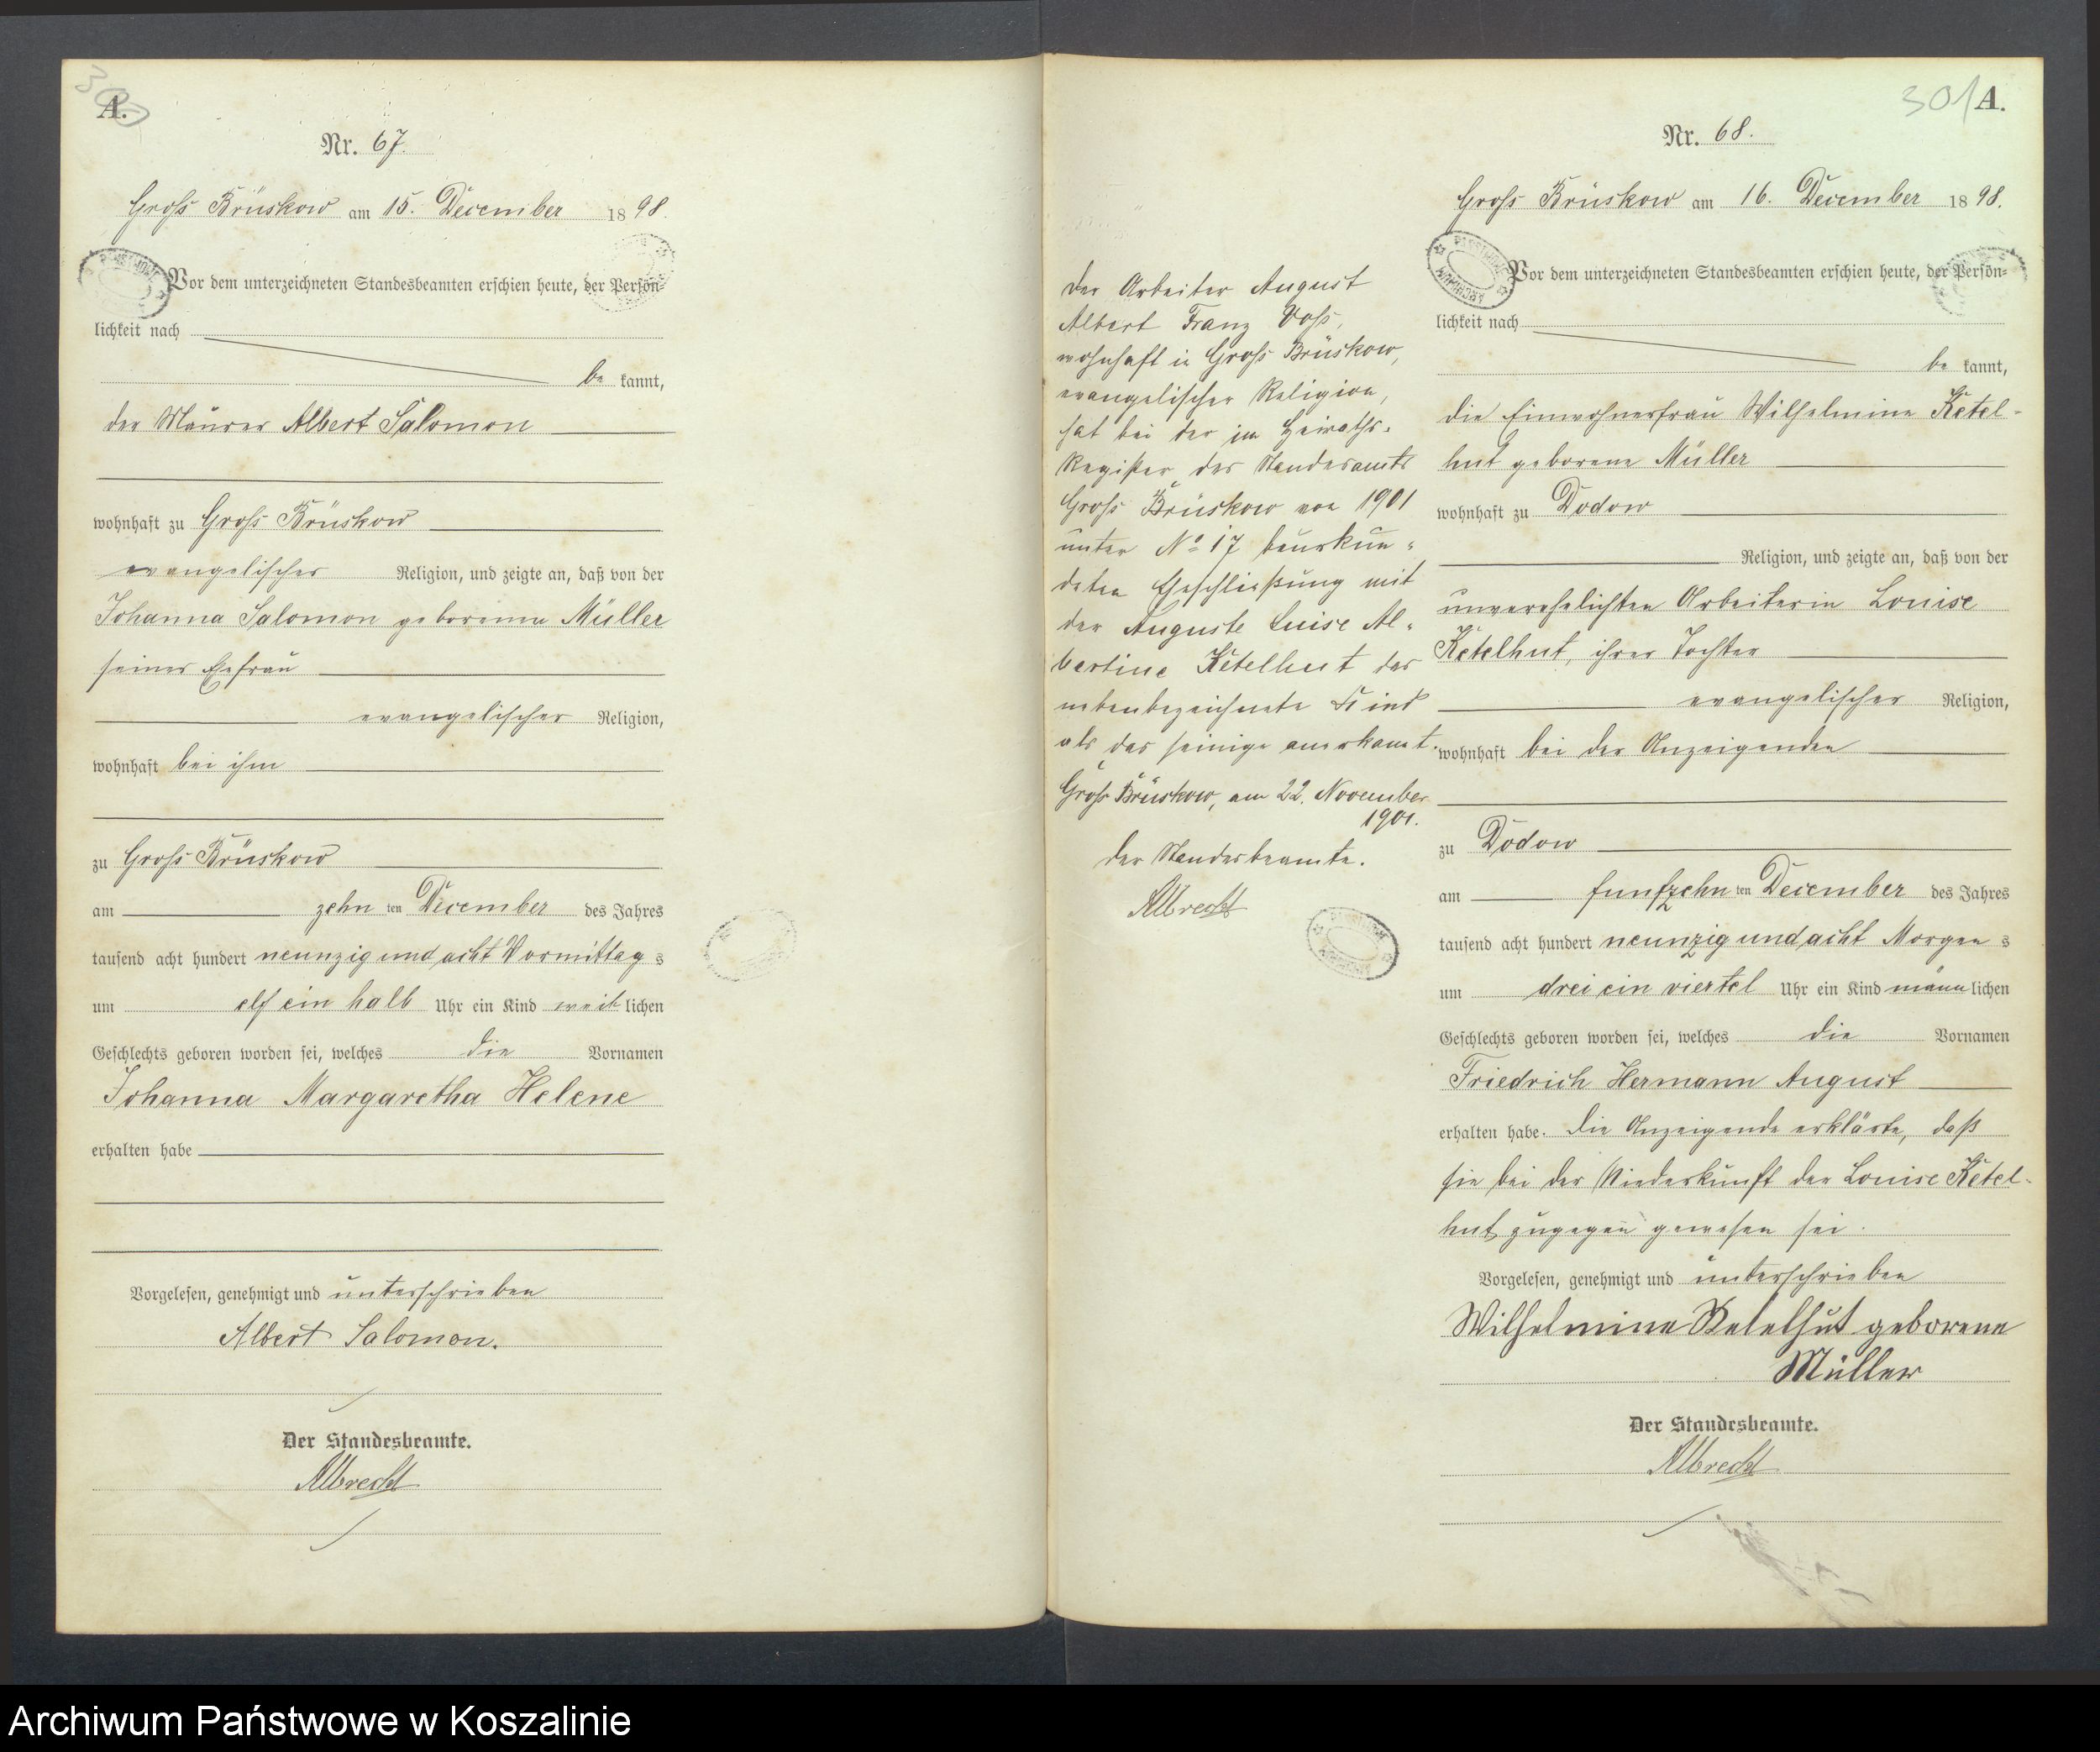 300
A.
Nr. 67.
Groß Brüskow am 15. December 1898.
Vor dem unterzeichneten Standesbeamten erschien heute, der Persön-
lichkeit nach
be kannt,
der Maurer Albert Salomon
wohnhaft zu Groß Brüskow
evangelischer Religion, und zeigte an, daß von der
Johanna Salomon geborenen Müller
seiner Ehefrau
evangelischer Religion,
wohnhaft bei ihm
zu Groß Brüskow
am zehn ten December des Jahres
tausend acht hundert neunzig und acht Vormittag s
um elf ein halb Uhr ein Kind weib lichen
Geschlechts geboren worden sei, welches die Vornamen
Johanna Margaretha Helene
erhalten habe
Vorgelesen, genehmigt und unterschrieben
Albert Salomon.
Der Standesbeamte.
Albrecht
Der Arbeiter August
Albert Franz Voß,
wohnhaft in Groß Brüskow,
evangelischer Religion,
hat bei der im Heiraths-
Register des Standesamts
Groß Brüskow von 1901
unter No 17 beurkun-
deten Eheschließung mit
der Auguste Luise Al-
bertine Ketelhut das
nebenbezeichnete Kind
als das seinige anerkannt.
Groß Brüskow, am 22. November
1901.
Der Standesbeamte.
Albrecht
301
A.
Nr. 68.
Groß Brüskow am 16. December 1898.
Vor dem unterzeichneten Standesbeamten erschien heute, der Persön-
lichkeit nach
be kannt,
die Einwohnerfrau Wilhelmine Ketel-
hut geborene Müller
wohnhaft zu Dodow
Religion, und zeigte an, daß von der
unverehelichten Arbeiterin Louise
Ketelhut, ihrer Tochter
evangelischer Religion,
wohnhaft bei der Anzeigenden
zu Dodow
am funfzehn ten December des Jahres
tausend acht hundert neunzig und acht Morgen s
um drei ein viertel Uhr ein Kind männ lichen
Geschlechts geboren worden sei, welches die Vornamen
Friedrich Hermann August
erhalten habe. Die Anzeigende erklärte, daß
sie bei der Niederkunft der Louise Ketel-
hut zugegen gewesen sei.
Vorgelesen, genehmigt und unterschrieben
Wilhelmine Ketelhut geborene
Müller
Der Standesbeamte.
Albrecht
Archiwum Państwowe w Koszalinie